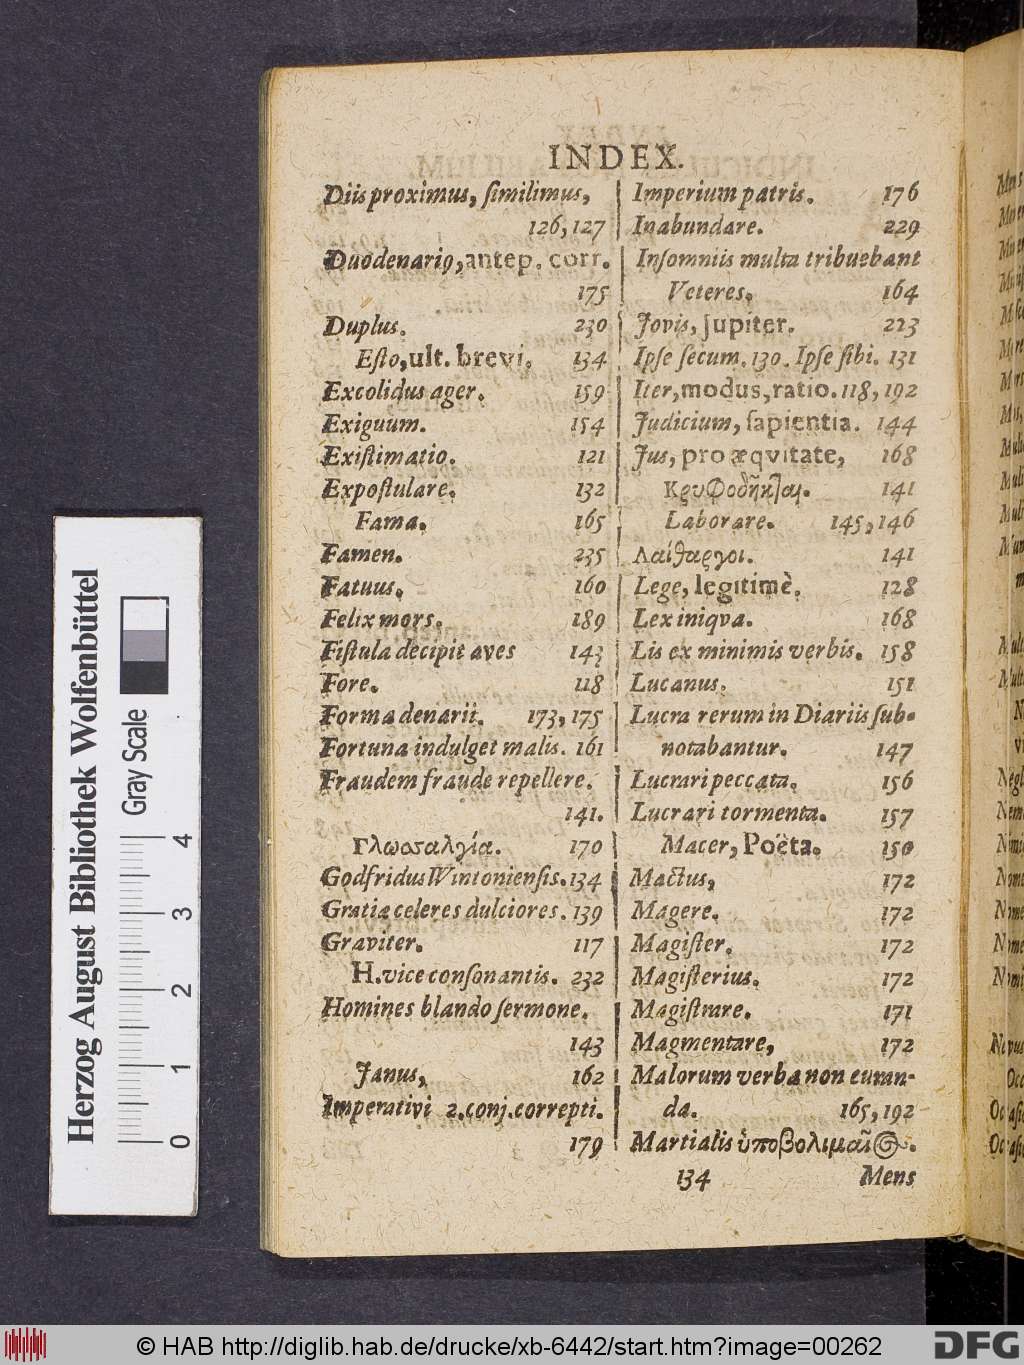 INDEX.
Diis proximus, ſimilimus,
126, 127
Duodenariꝰ, antep. corr.
175
Duplus. 230
Eſto, ult. brevi. 134
Excolidus ager. 159
Exiguum. 154
Exiſtimatio. 121
Expoſtulare. 132
Fama. 165
Famen. 235
Fatuus. 160
Felix mors. 189
Fiſtula decipit aves 143
Fore. 118
Forma denarii. 173, 175
Fortuna indulget malis. 161
Fraudem fraude repellere.
141.
Γλωοσαλγία. 170
Godfridus Wintonienſis. 134
Gratiæ celeres dulciores. 139
Graviter. 117
H. vice conſonantis. 232
Homines blando ſermone.
143
Janus, 162
Imperativi 2. conj. correpti.
179
Imperium patris. 176
Inabundare. 229
Inſomniis multa tribuebant
Veteres. 164
Jovis, Jupiter. 223
Ipſe ſecum. 130. Ipſe ſibi. 131
Iter, modus, ratio. 118, 192
Judicium, ſapientia. 144
Jus, pro æqvitate, 168
Κρυφοδῆκται. 141
Laborare. 145, 146
Λαίθαργοι. 141
Lege, legitimè. 128
Lex iniqva. 168
Lis ex minimis verbis. 158
Lucanus. 151
Lucra rerum in Diariis ſub-
notabantur. 147
Lucrari peccata. 156
Lucrari tormenta. 157
Macer, Poëta. 150
Mactus, 172
Magere. 172
Magiſter. 172
Magiſterius. 172
Magiſtrare. 171
Magmentare, 172
Malorum verba non curan-
da. 165, 192
Martialis ὑποβολιμαῖος.
134 Mens
Herzog August Bibliothek Wolfenbüttel
Gray Scale
0 1 2 3 4
© HAB http://diglib.hab.de/drucke/xb-6442/start.htm?image=00262
DFG